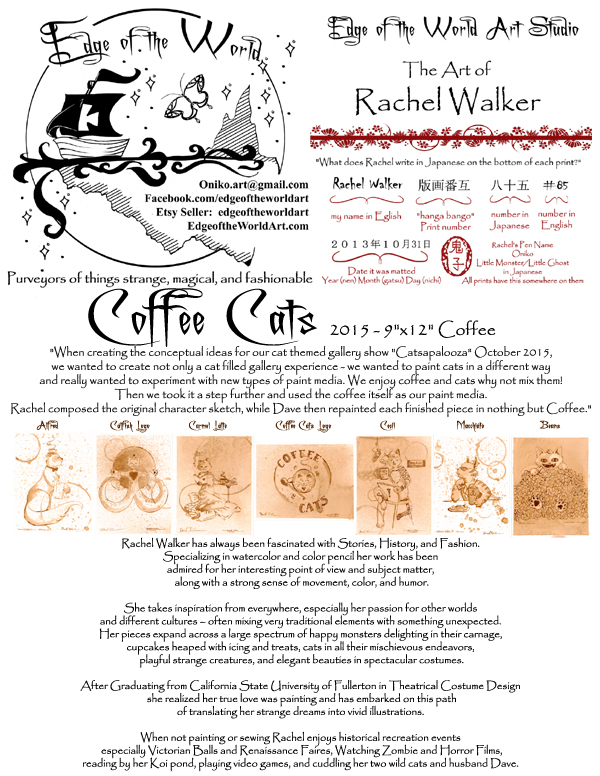 Edge of the World
Oniko.art@gmail.com
Facebook.com/edgeoftheworldart
Etsy Seller:  edgeoftheworldart
EdgeoftheWorldArt.com
Purveyors of things strange, magical, and fashionable
Edge of the World Art Studio
The Art of
Rachel Walker
"What does Rachel write in Japanese on the bottom of each print?"
Rachel Walker 版画番互 八十五 #85
my name in Eglish "hanga bango" Print number number in Japanese number in English
2013年10月31日
Date it was matted
Year (nen) Month (gatsu) Day (nichi)
鬼子
Rachel's Pen Name
Oniko
Little Monster/Little Ghost
in Japanese
All prints have this somewhere on them
Coffee Cats 2015 - 9"x12" Coffee
"When creating the conceptual ideas for our cat themed gallery show "Catsapalooza" October 2015,
we wanted to create not only a cat filled gallery experience - we wanted to paint cats in a different way
and really wanted to experiment with new types of paint media. We enjoy coffee and cats why not mix them!
Then we took it a step further and used the coffee itself as our paint media.
Rachel composed the original character sketch, while Dave then repainted each finished piece in nothing but Coffee."
Alfred Catfish Logo Carmel Latte Coffee Cats Logo Ceoil Macchiato Beans
COFFEE
CATS
Rachel Walker has always been fascinated with Stories, History, and Fashion.
Specializing in watercolor and color pencil her work has been
admired for her interesting point of view and subject matter,
along with a strong sense of movement, color, and humor.
She takes inspiration from everywhere, especially her passion for other worlds
and different cultures – often mixing very traditional elements with something unexpected.
Her pieces expand across a large spectrum of happy monsters delighting in their carnage,
cupcakes heaped with icing and treats, cats in all their mischievous endeavors,
playful strange creatures, and elegant beauties in spectacular costumes.
After Graduating from California State University of Fullerton in Theatrical Costume Design
she realized her true love was painting and has embarked on this path
of translating her strange dreams into vivid illustrations.
When not painting or sewing Rachel enjoys historical recreation events
especially Victorian Balls and Renaissance Faires, Watching Zombie and Horror Films,
reading by her Koi pond, playing video games, and cuddling her two wild cats and husband Dave.